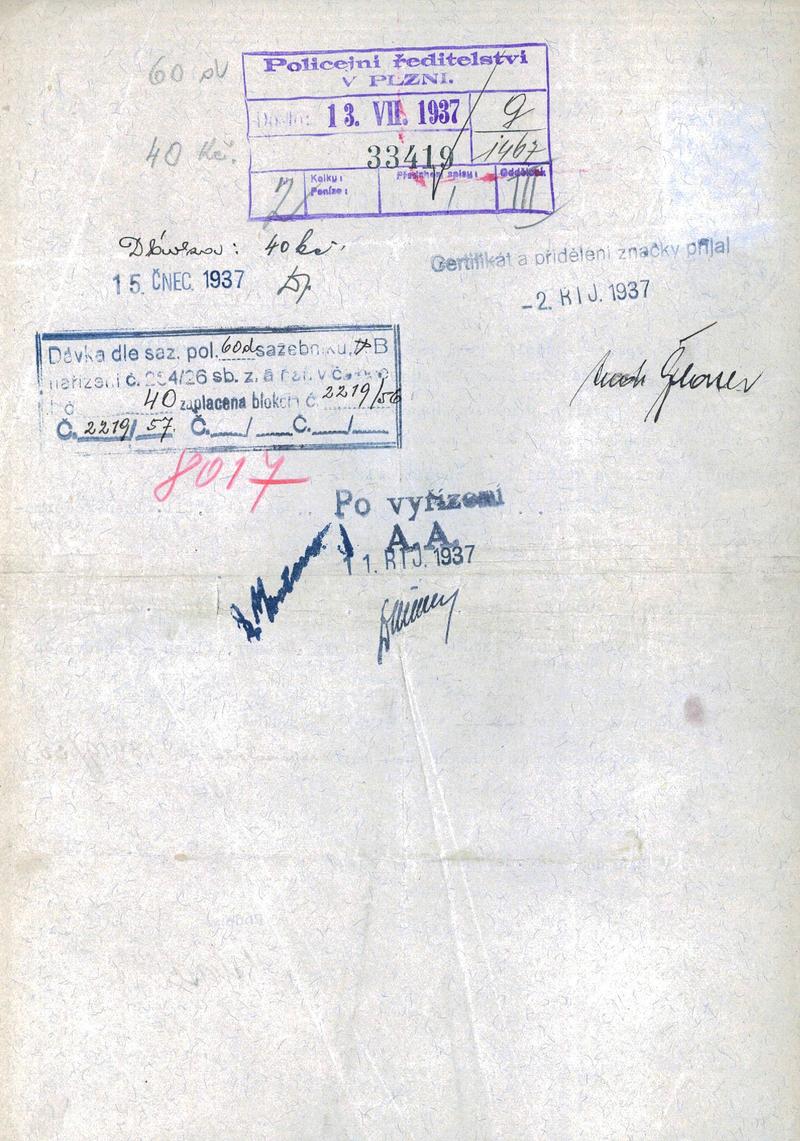 60
Policejní ředitelství
V PLZNI.
Došlo: 13. VII. 1937
9
1467
40 Kč.
33419
Kolky:
Peníze:
Předchozí spisy:
Oddělení
2
1
III
Dávka: 40 kč.
15. ČNEC. 1937
Certifikát a přidělení značky přijal
-2. ŘÍJ. 1937
Dávka dle saz. pol. 60d sazebníku, B
nařízení č. 254/26 sb. z. a n.
40 zaplacena blokem č. 2219/56
Č. 2219/57. Č.___/___ Č.___/___
8017
Po vyřízení
A. A.
11. ŘÍJ. 1937